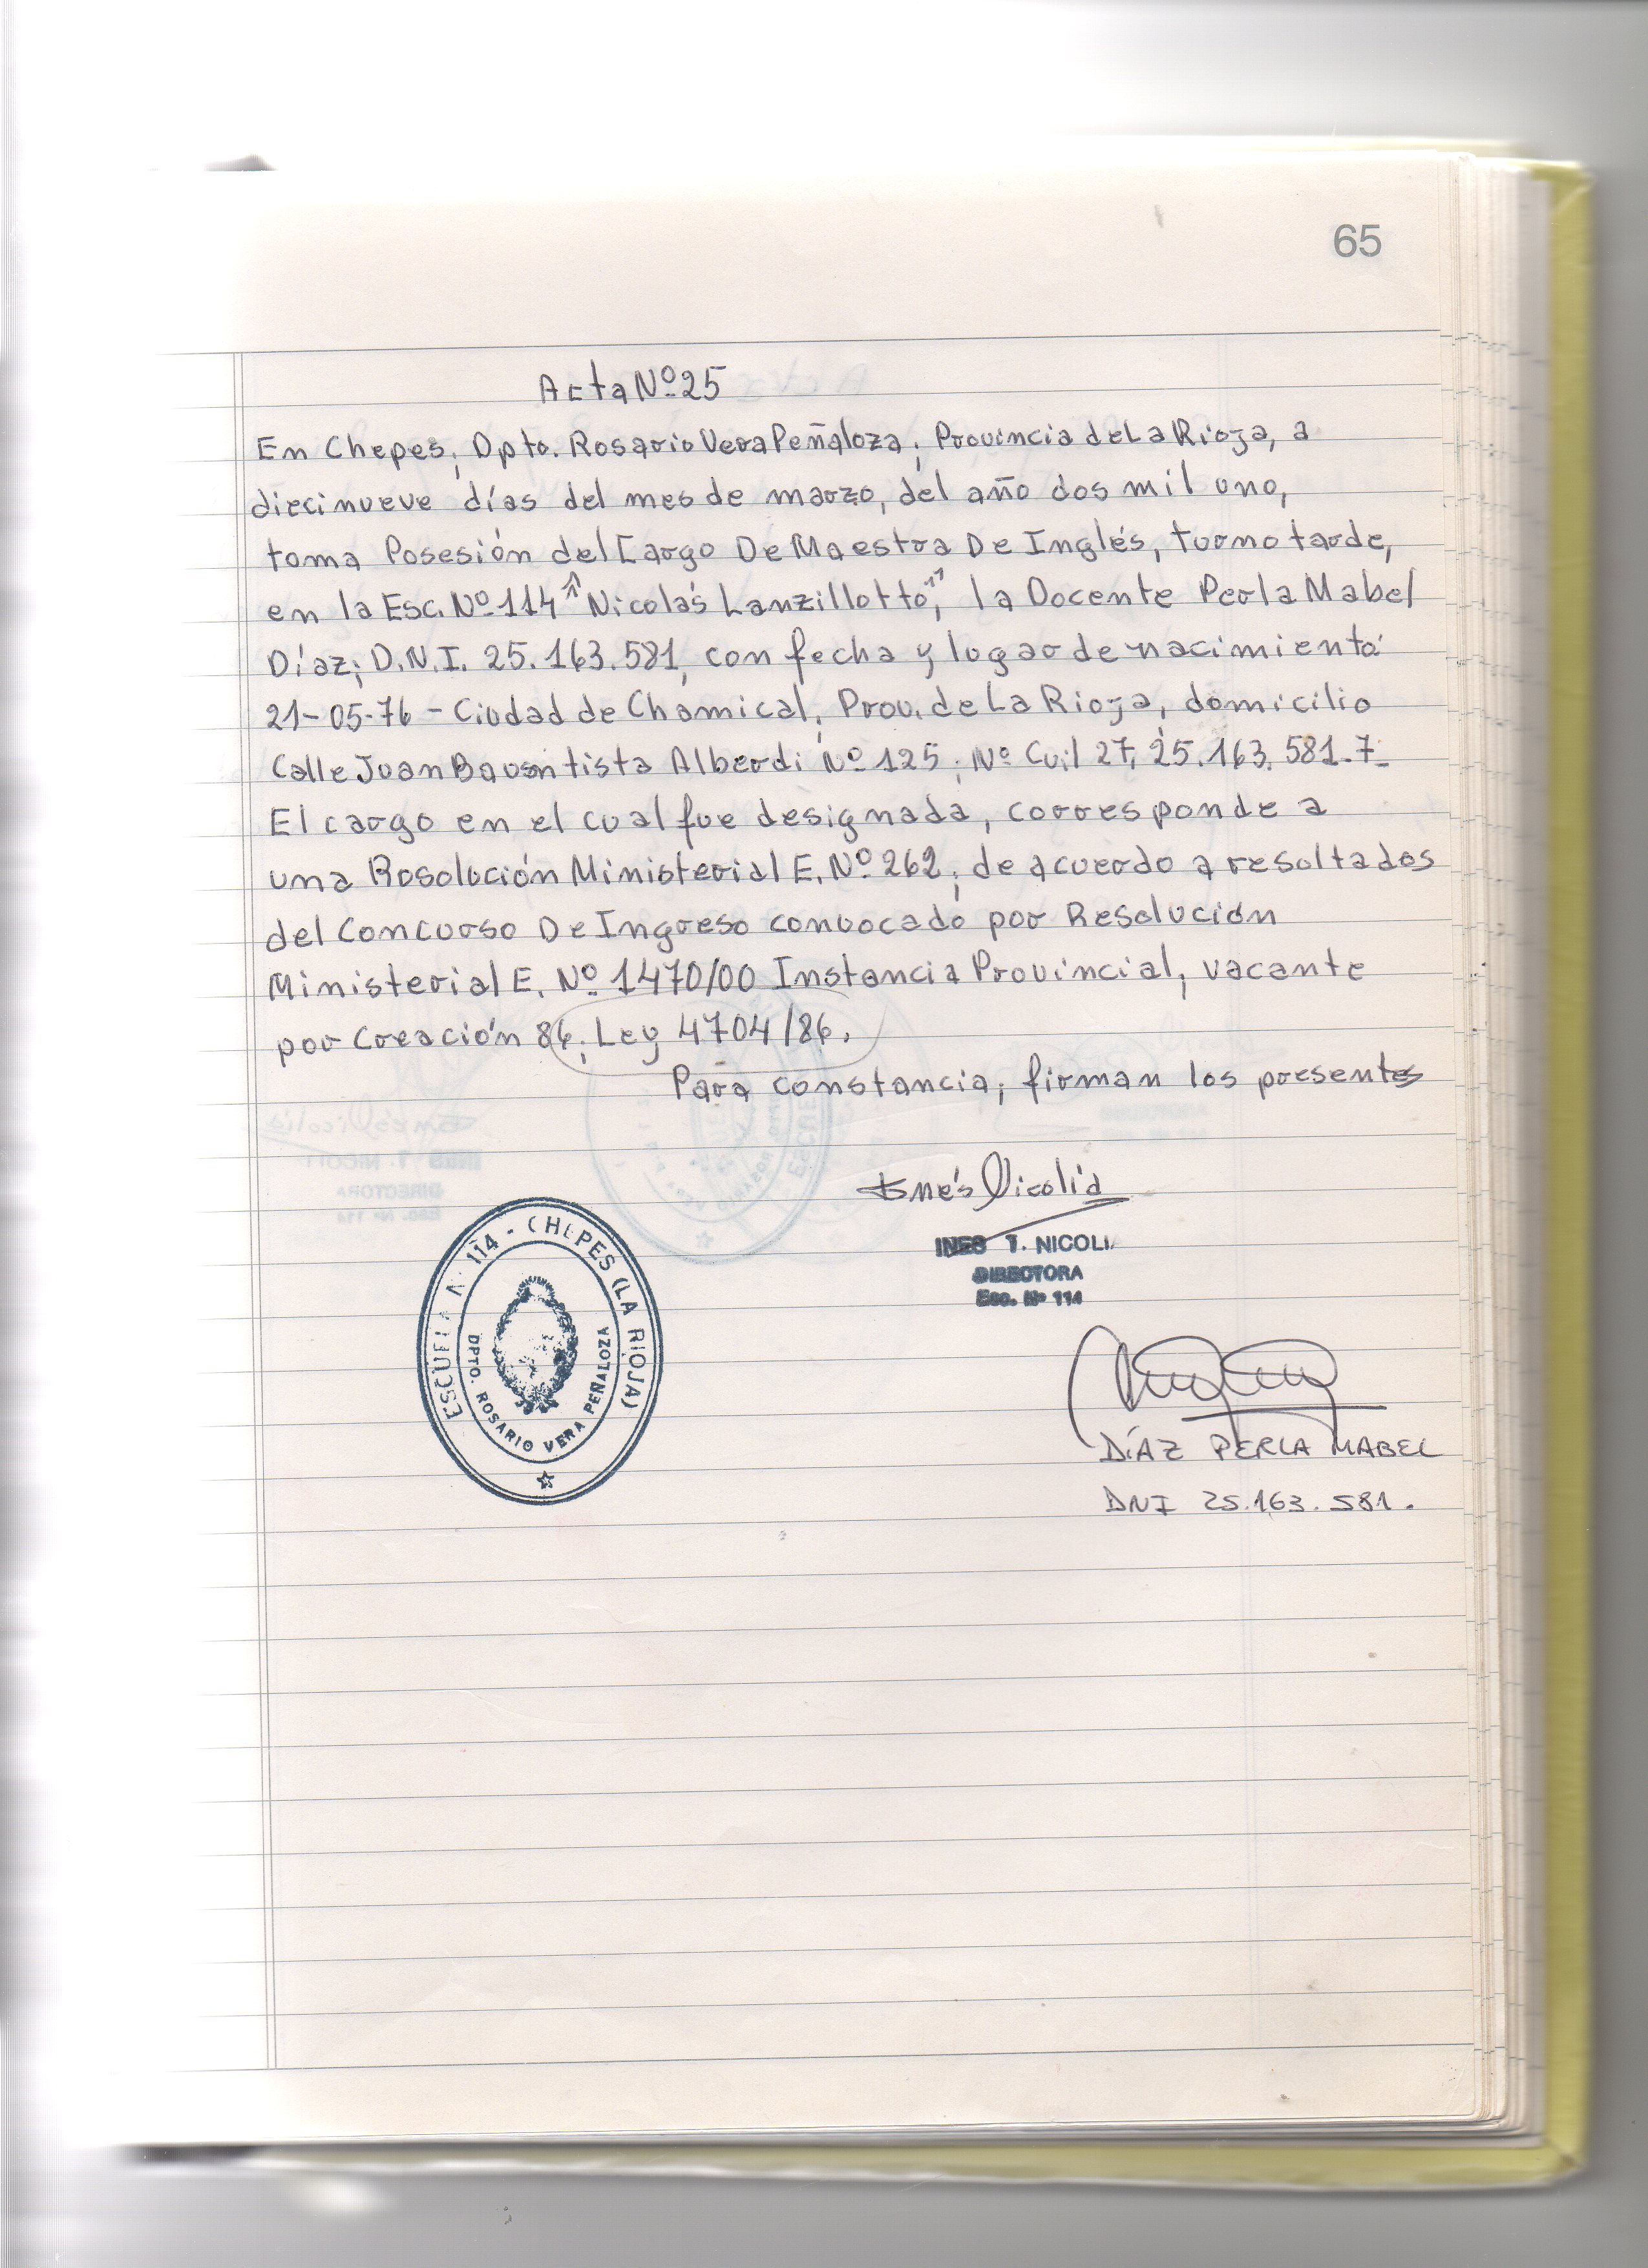 65
Acta Nº 25
En Chepes, Dpto. Rosario Vera Peñaloza, Provincia de La Rioja, a
diecinueve días del mes de marzo, del año dos mil uno,
toma Posesión del Cargo De Maestra De Inglés, turno tarde,
en la Esc. Nº 114 "Nicolás Lanzillotto", la Docente Perla Mabel
Díaz; D.N.I. 25.163.581, con fecha y lugar de nacimiento:
21-05-76 - Ciudad de Chamical, Prov. de La Rioja, domicilio
Calle Juan Bautista Alberdi Nº 125; Nº Cuil 27.25.163.581-7-
El cargo en el cual fue designada, corresponde a
una Resolución Ministerial E. Nº 262, de acuerdo a resultados
del Concurso De Ingreso convocado por Resolución
Ministerial E. Nº 1470/00 Instancia Provincial, vacante
por Creación 86, Ley 4704/86.
Para constancia, firman los presentes
Inés Nicolía
INES T. NICOLI
DIRECTORA
Esc. Nº 114
ESCUELA Nº 114 - CHEPES (LA RIOJA)
DPTO. ROSARIO VERA PEÑALOZA
DÍAZ PERLA MABEL
DNI 25.163.581.